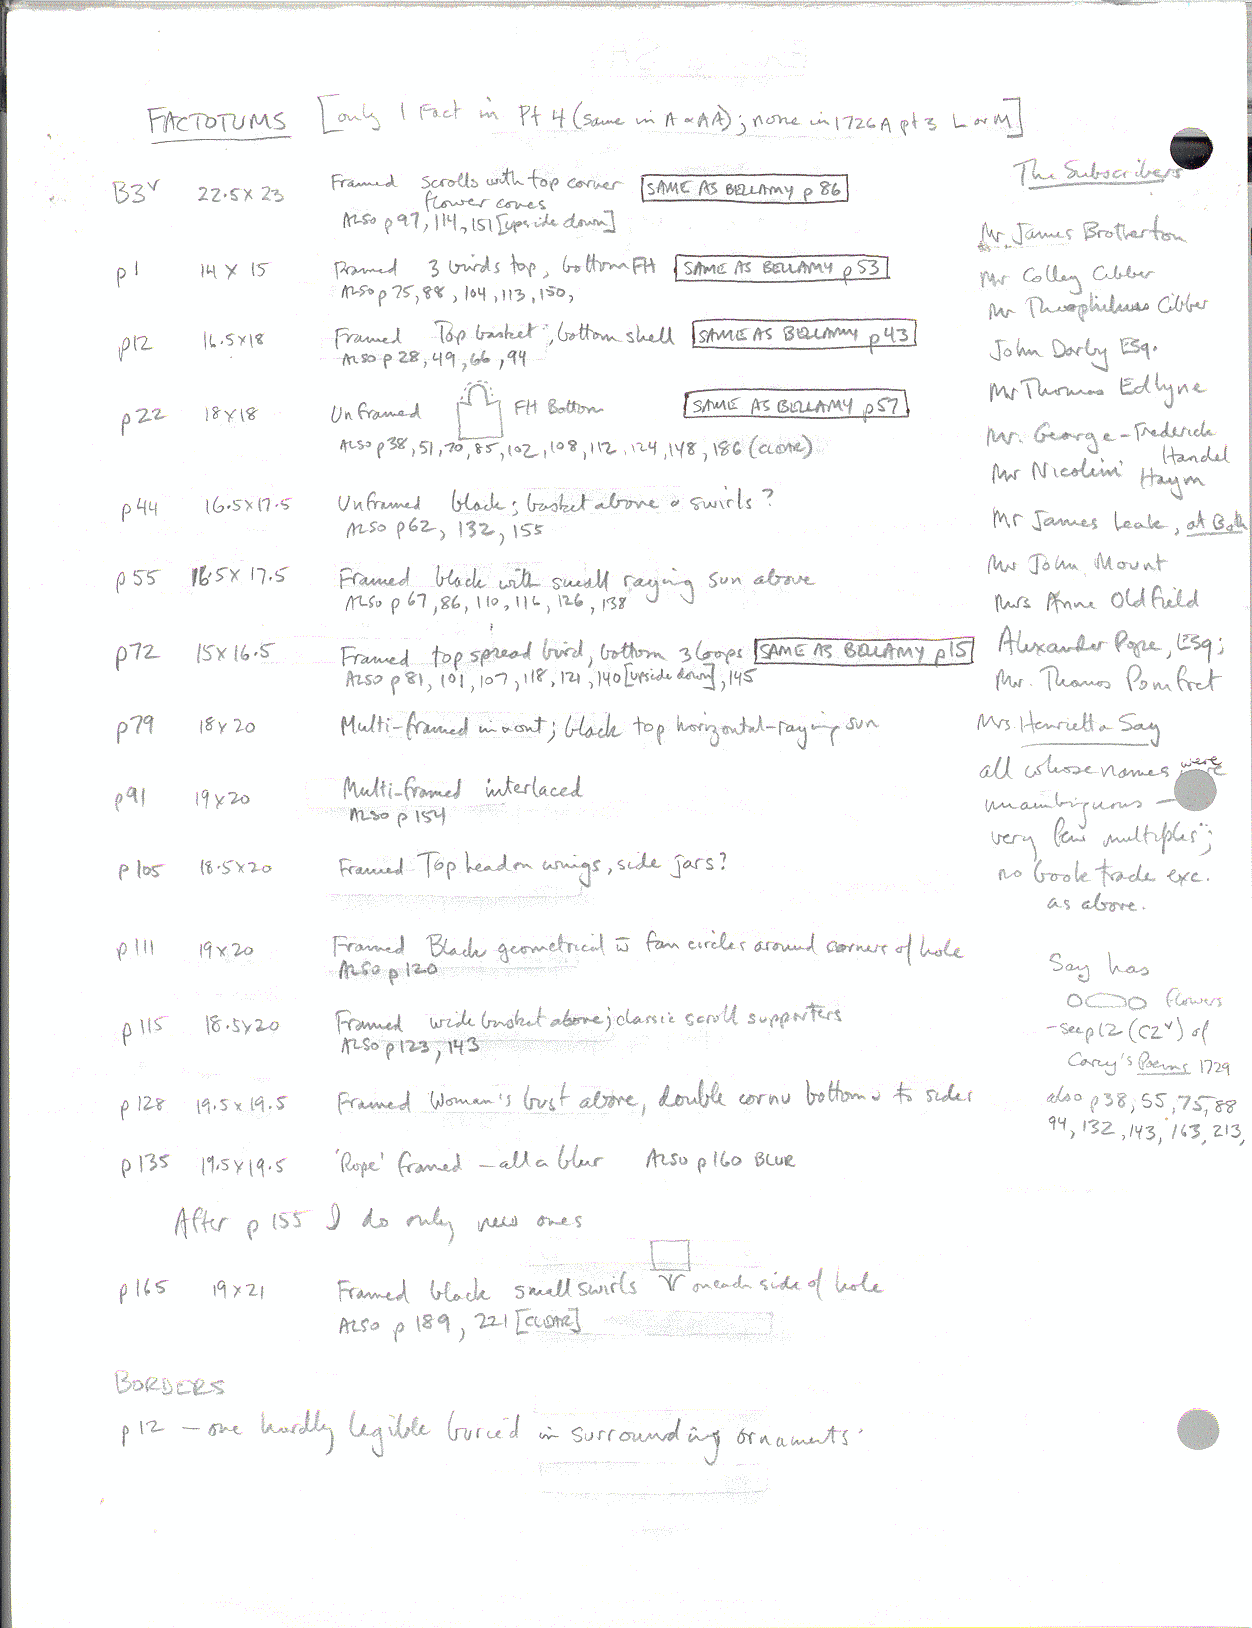 FACTOTUMS [only 1 Fact in Pt 4 (same in A or AA); none in 1726A pt 3 L or M]
B3v 22.5 x 23 Framed scrolls with top corner SAME AS BELLAMY p 86
flower cones
ALSO p 97, 114, 151 [upside down]
p1 14 x 15 Framed 3 birds top, bottom FH SAME AS BELLAMY p53
ALSO p 75, 88, 104, 113, 150,
p12 16.5 x 18 Framed Top basket, bottom shell SAME AS BELLAMY p43
ALSO p 28, 49, 66, 94
p22 18 x 18 Unframed FH Bottom SAME AS BELLAMY p57
ALSO p38, 51, 70, 85, 102, 108, 112, 124, 148, 186 (CLEAR)
p44 16.5 x 17.5 Unframed black; basket above & swirls?
ALSO p62, 132, 155
p55 16.5 x 17.5 Framed black with small raying sun above
ALSO p 67, 86, 110, 116, 126, 138
p72 15 x 16.5 Framed top spread bird, bottom 3 loops SAME AS BELLAMY p15
ALSO p 81, 101, 107, 118, 121, 140 [upside down], 145
p79 18 x 20 Multi-framed in & out; black top horizontal-raying sun
p91 19 x 20 Multi-framed interlaced
ALSO p 154
p105 18.5 x 20 Framed Top head on wings, side jars?
p111 19 x 20 Framed Black geometrical w fan circles around corners of hole
ALSO p 120
p115 18.5 x 20 Framed wide basket above; classic scroll supporters
ALSO p 123, 143
p128 19.5 x 19.5 Framed Woman's bust above, double cornu bottom to sides
p135 19.5 x 19.5 'Rope' framed - all a blur ALSO p 160 BLUR
After p 155 I do only new ones
p165 19 x 21 Framed black small swirls on each side of hole
ALSO p 189, 221 [CLEAR]
BORDERS
p12 - one hardly legible buried in surrounding ornaments.
The Subscribers
Mr. James Brotherton
Mr Colley Cibber
Mr Theophilus Cibber
John Darby Esq.
Mr Thomas Edlyne
Mr. George-Frederick
Handel
Mr Nicolini Haym
Mr James Leak, at Bath
Mr John Mount
Mrs Anne Oldfield
Alexander Pope, Esq;
Mr. Thomas Pomfret
Mrs. Henrietta Say
all whose names were
unambiguous -
very few "multiples";
no book trade exc.
as above.
Say has
flowers
- see p12 (C2v) of
Carey's Poems 1729
also p38, 55, 75, 88
94, 132, 143, 163, 213,